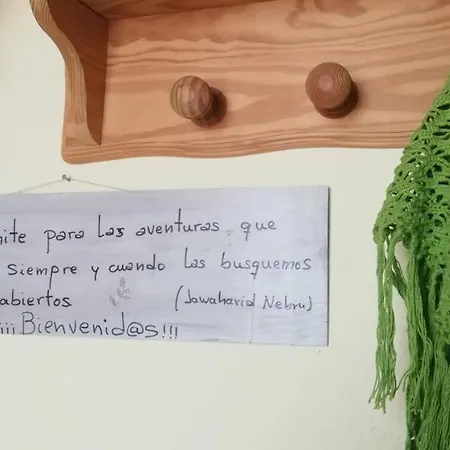 ite para las aventuras que
siempre y cuando las busquemos
abiertos (Jawaharid Nehru)
¡¡¡Bienvenid@s!!!